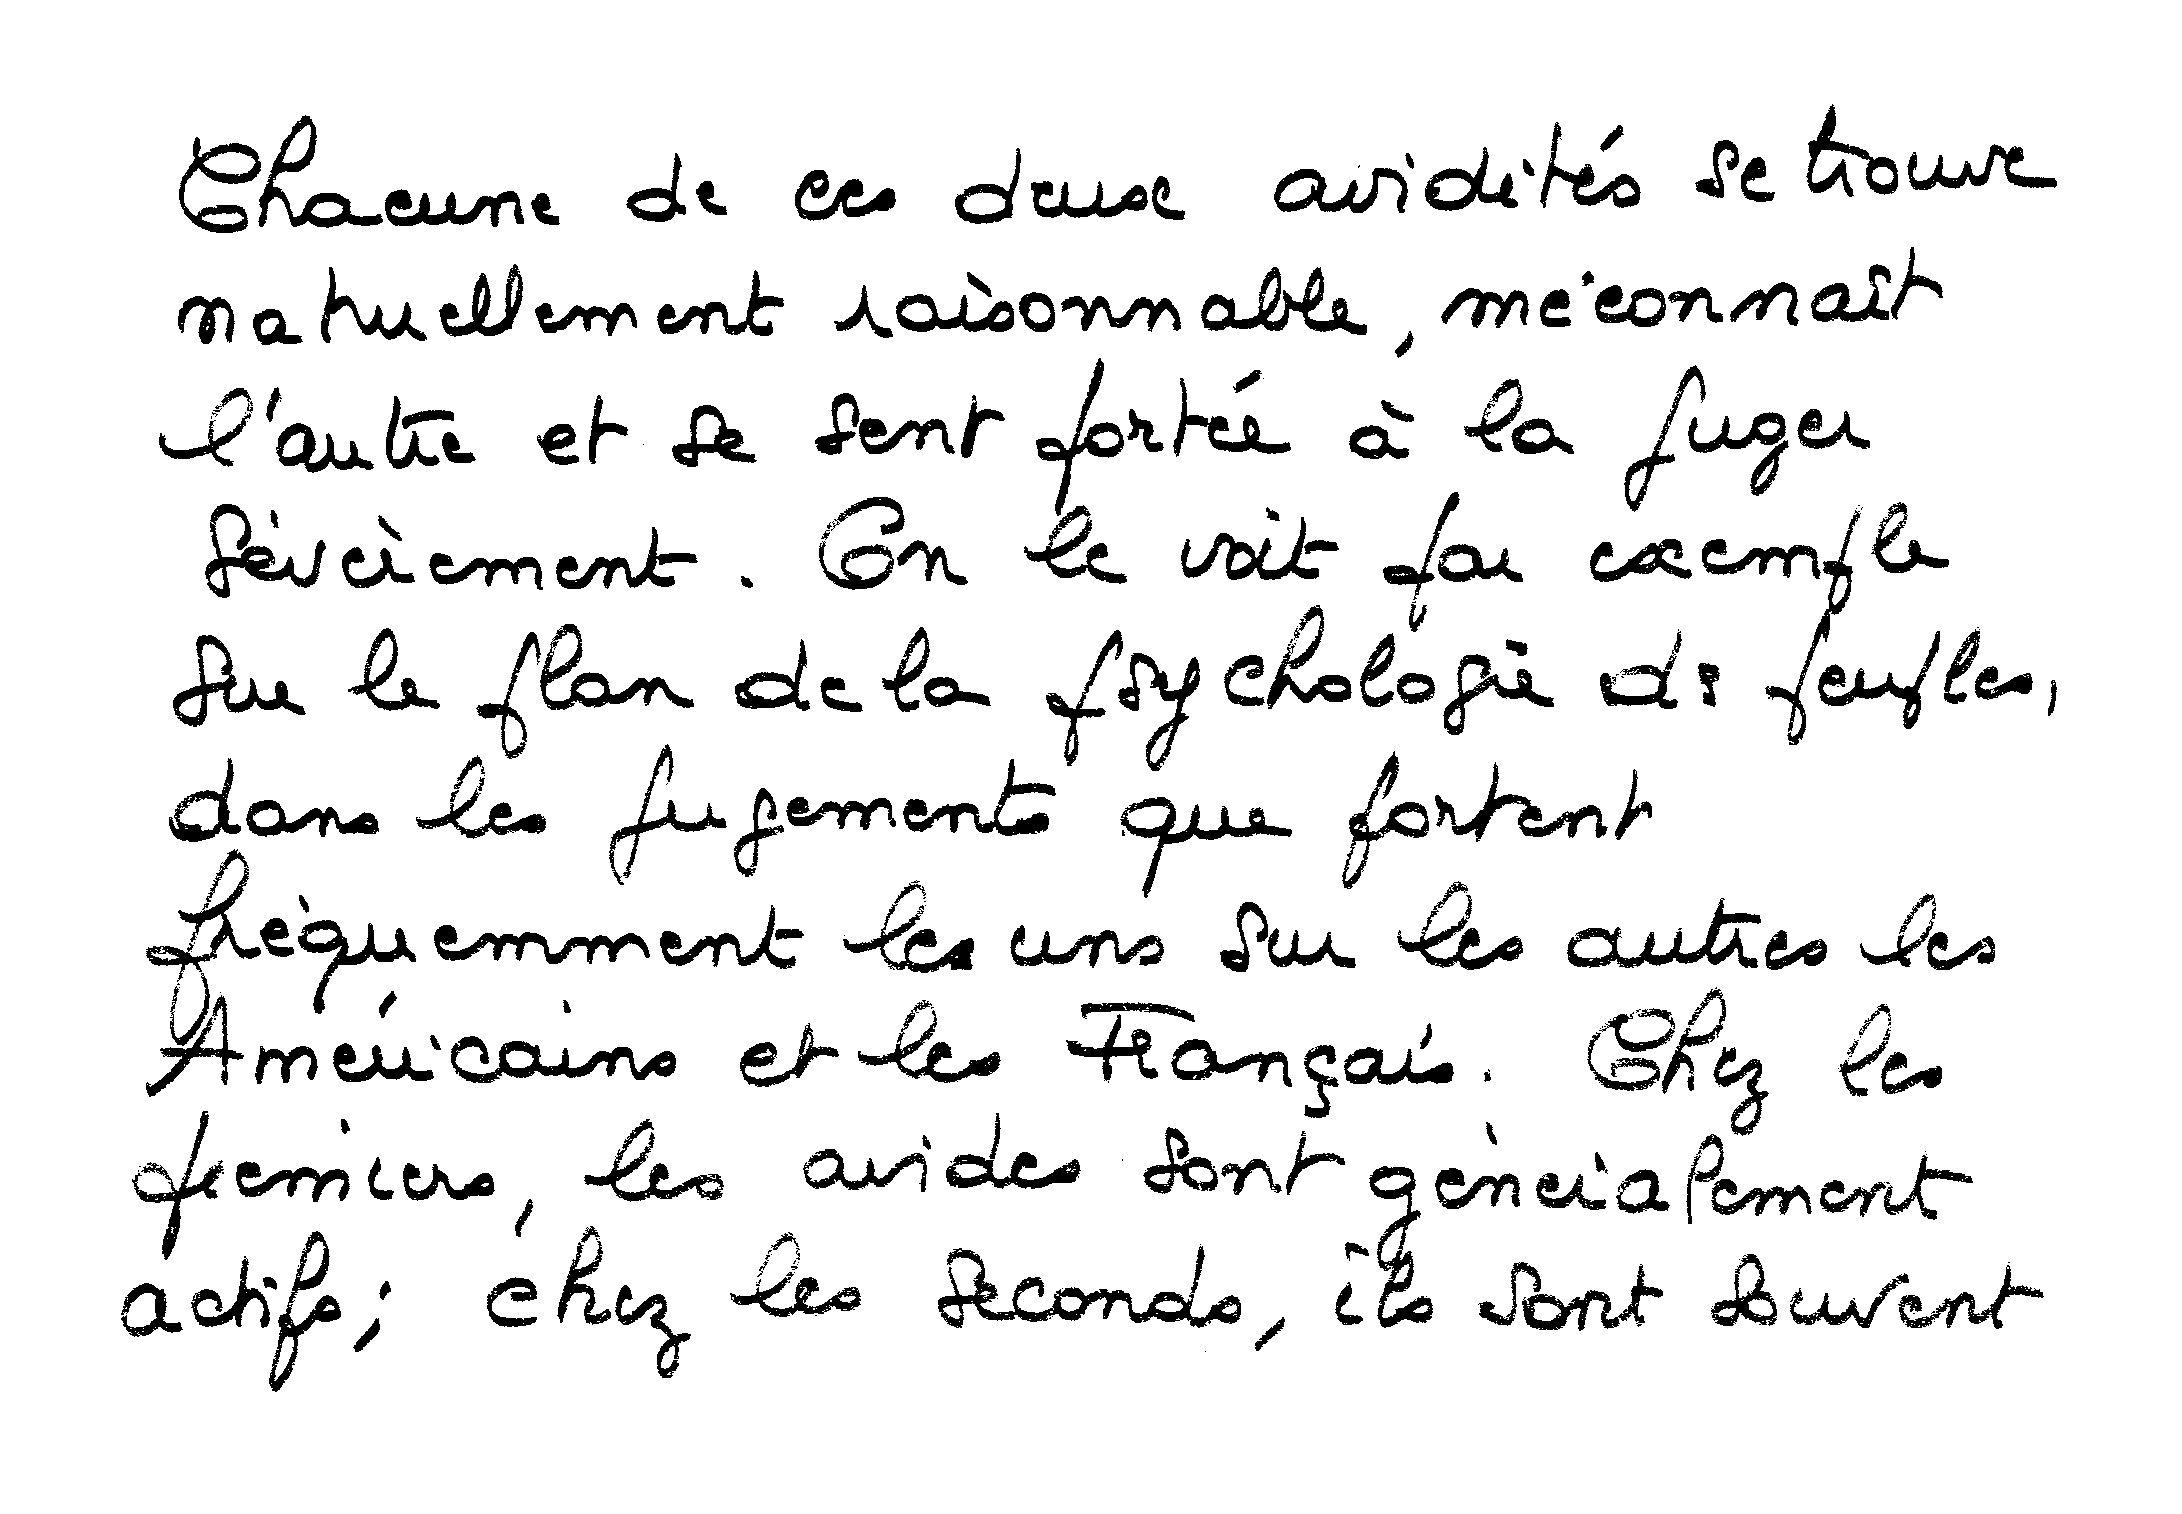 Chacune de ces deux avidités se trouve
naturellement raisonnable, méconnaît
l'autre et se sent portée à la juger
sévèrement. On le voit par exemple
sur le plan de la psychologie des peuples,
dans les jugements que portent
fréquemment les uns sur les autres les
Américains et les Français. Chez les
premiers, les avides sont généralement
actifs ; chez les seconds, ils sont souvent